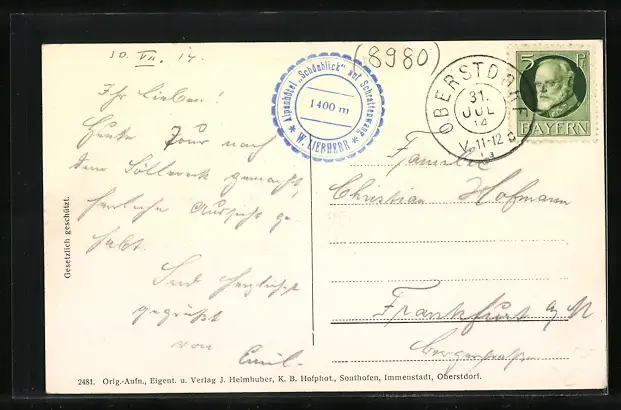 30. VII. 14.
(8980)
Alpenhôtel „Schönblick" auf Schrattenwang
1400 m
* W. LIEBHERR *
OBERSTDORF
31.
JUL
14
V.11-12
5 Pf
BAYERN
Ihr Lieben!
Heute Tour nach
dem Söllereck gemacht,
herrliche Aussicht ge-
habt.
Seid herzlichst
gegrüßt
von
Emil.
Familie
Christian Hofmann
Frankfurt a/M
Bergerstraße
Gesetzlich geschützt.
2481. Orig.-Aufn., Eigent. u. Verlag J. Heimhuber, K. B. Hofphot., Sonthofen, Immenstadt, Oberstdorf.